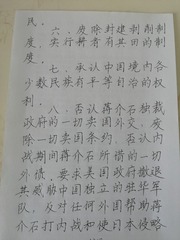 民。
六、废除封建剥削制
度，实行耕者有其田的制
度。
七、承认中国境内各
少数民族有平等自治的权
利。
八、否认蒋介石独裁
政府的一切卖国外交，废
除一切卖国条约，否认内
战期间蒋介石所借的一切
外债，要求美国政府撤退
其威胁中国独立的驻华军
队，反对任何外国帮助蒋
介石打内战和使日本侵略